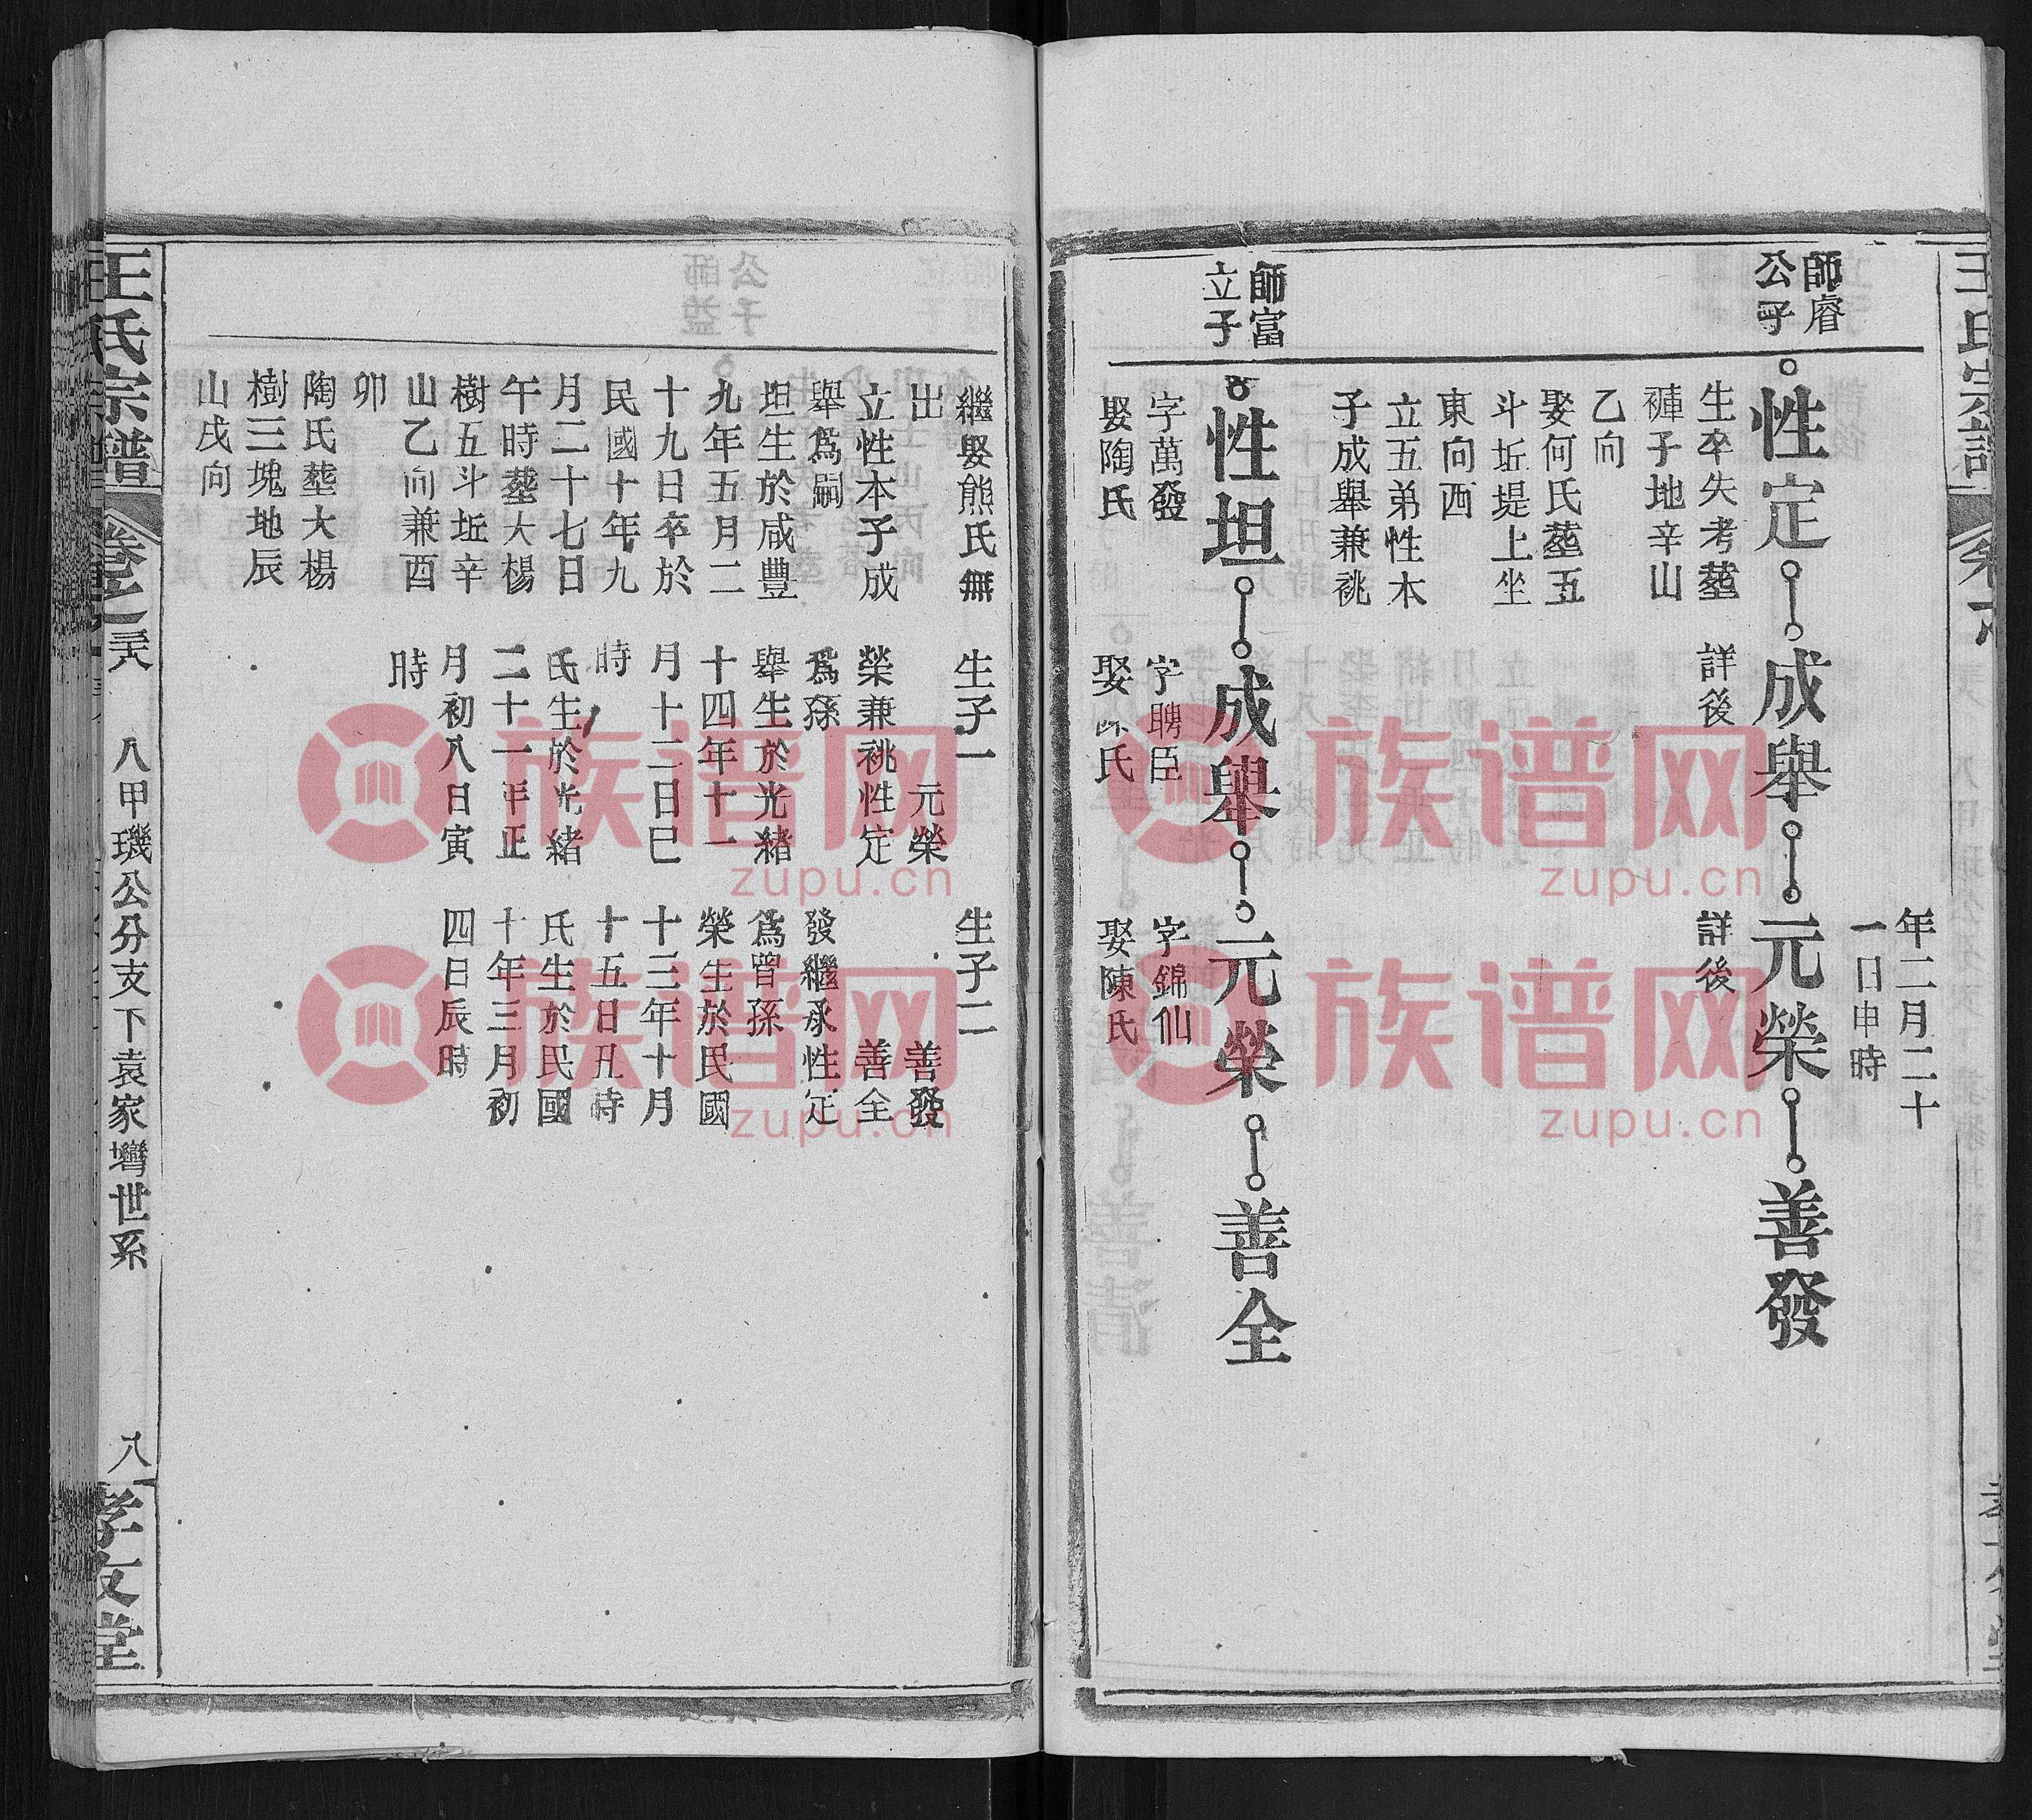 年二月二十
一日申時
師睿
公子
性定
成舉
元榮
善發
生卒失考塟
褲子地辛山
乙向
娶何氏塟五
斗坵堤上坐
東向西
立五弟性本
子成舉兼祧
詳後
詳後
師富
立子
性坦
成舉
元榮
善全
字萬發
娶陶氏
字聘臣
娶
氏
字錦仙
娶陳氏
繼娶熊氏無
出
立性本子成
舉爲嗣
坦生於咸豐
九年五月二
十九日卒於
民國十年九
月二十七日
午時塟大楊
樹五斗坵辛
山乙向兼酉
卯
陶氏塟大楊
樹三塊地辰
山戌向
生子一
元榮
榮兼祧性定
爲孫
舉生於光緒
十四年十一
月十二日巳
時
氏生於光緒
二十一年正
月初八日寅
時
生子二
善發
善全
發繼承性定
爲曾孫
榮生於民國
十三年十月
十五日丑時
氏生於民國
十年三月初
四日辰時
王氏宗譜
八甲璣公分支下袁家壪世系
八
孝友堂
族谱网
zupu.cn
族谱网
zupu.cn
族谱网
zupu.cn
族谱网
zupu.cn